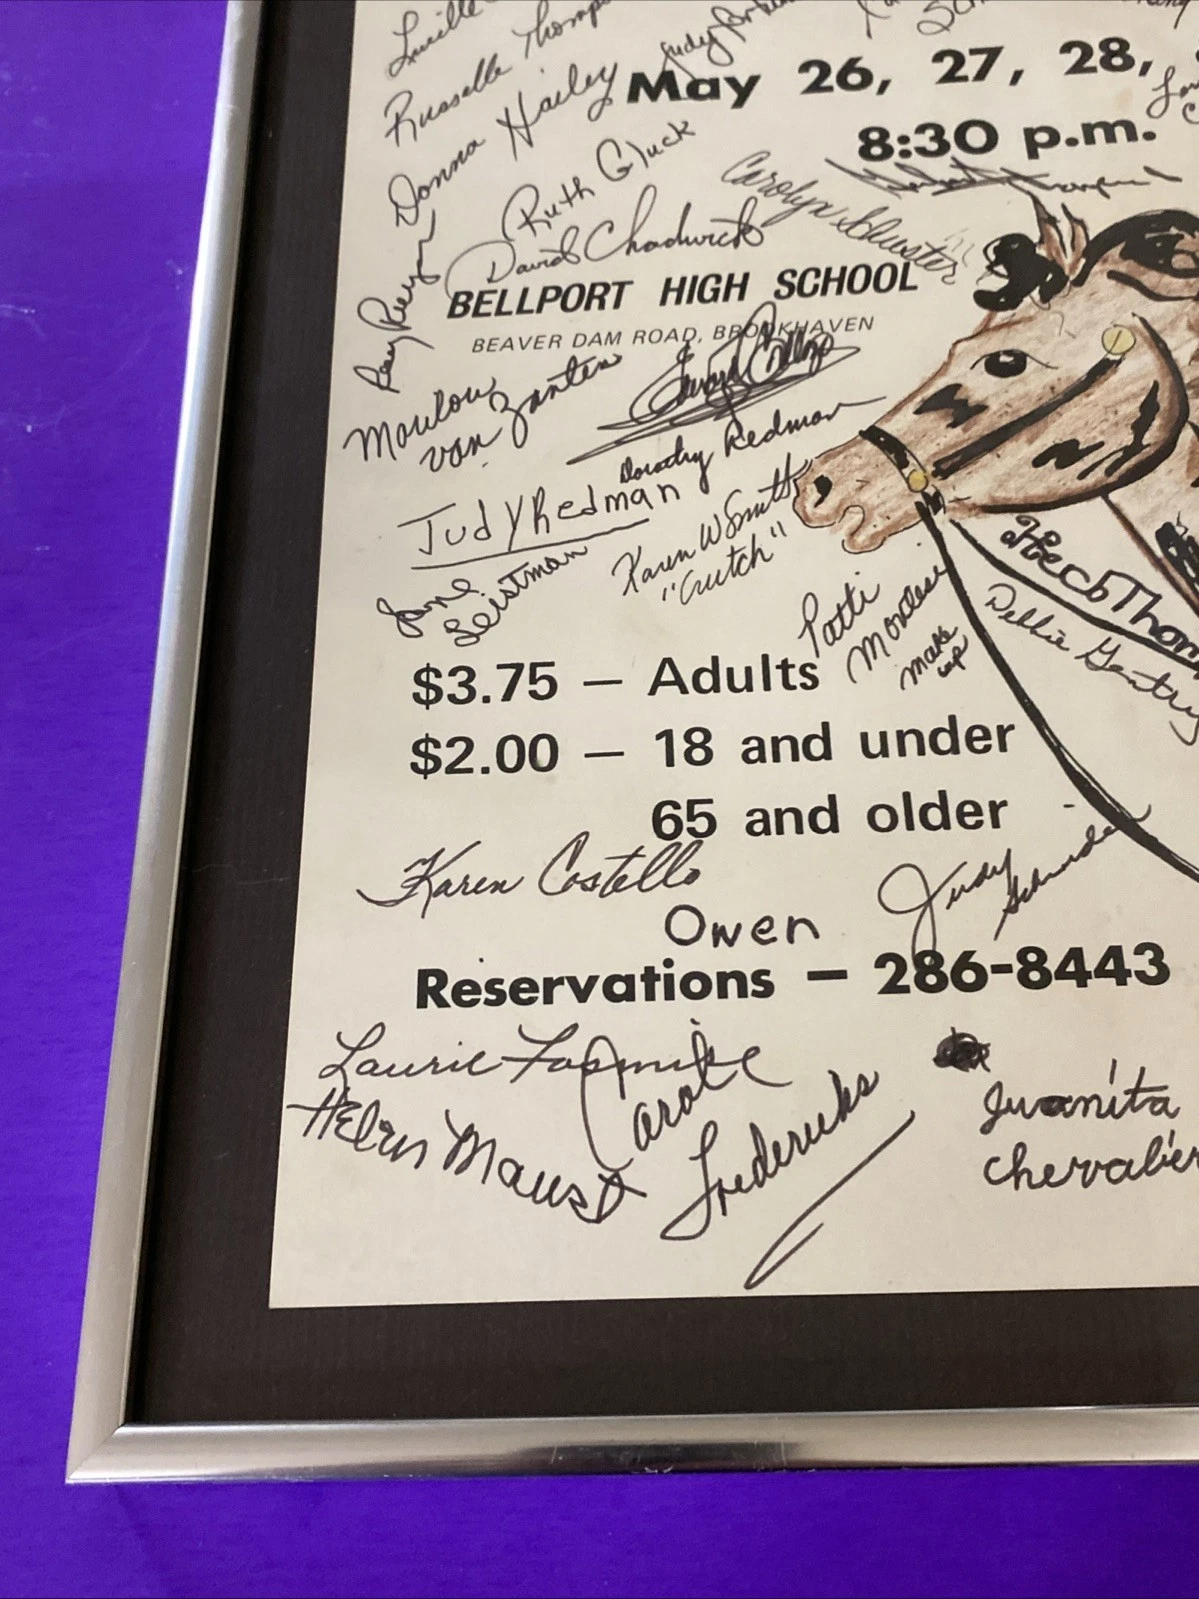 Lucille
Russelle Thomps
Donna Hailey
Judy
May 26, 27, 28,
8:30 p.m.
Ruth Gluck
Carolyn Schuster
David Chadwick
BELLPORT HIGH SCHOOL
BEAVER DAM ROAD, BROOKHAVEN
Marilou
van Zanten
Dorothy Redman
Judy Redman
Karen W Smith
"Crutch"
Jane
Leistman
Patti
make
up
Herb Thom
Debbie Gentry
$3.75 — Adults
$2.00 — 18 and under
65 and older
Karen Costello
Judy
Owen
Reservations — 286-8443
Laurie
Carole
Fredericks
Helen Maust
Juanita
Chevalier